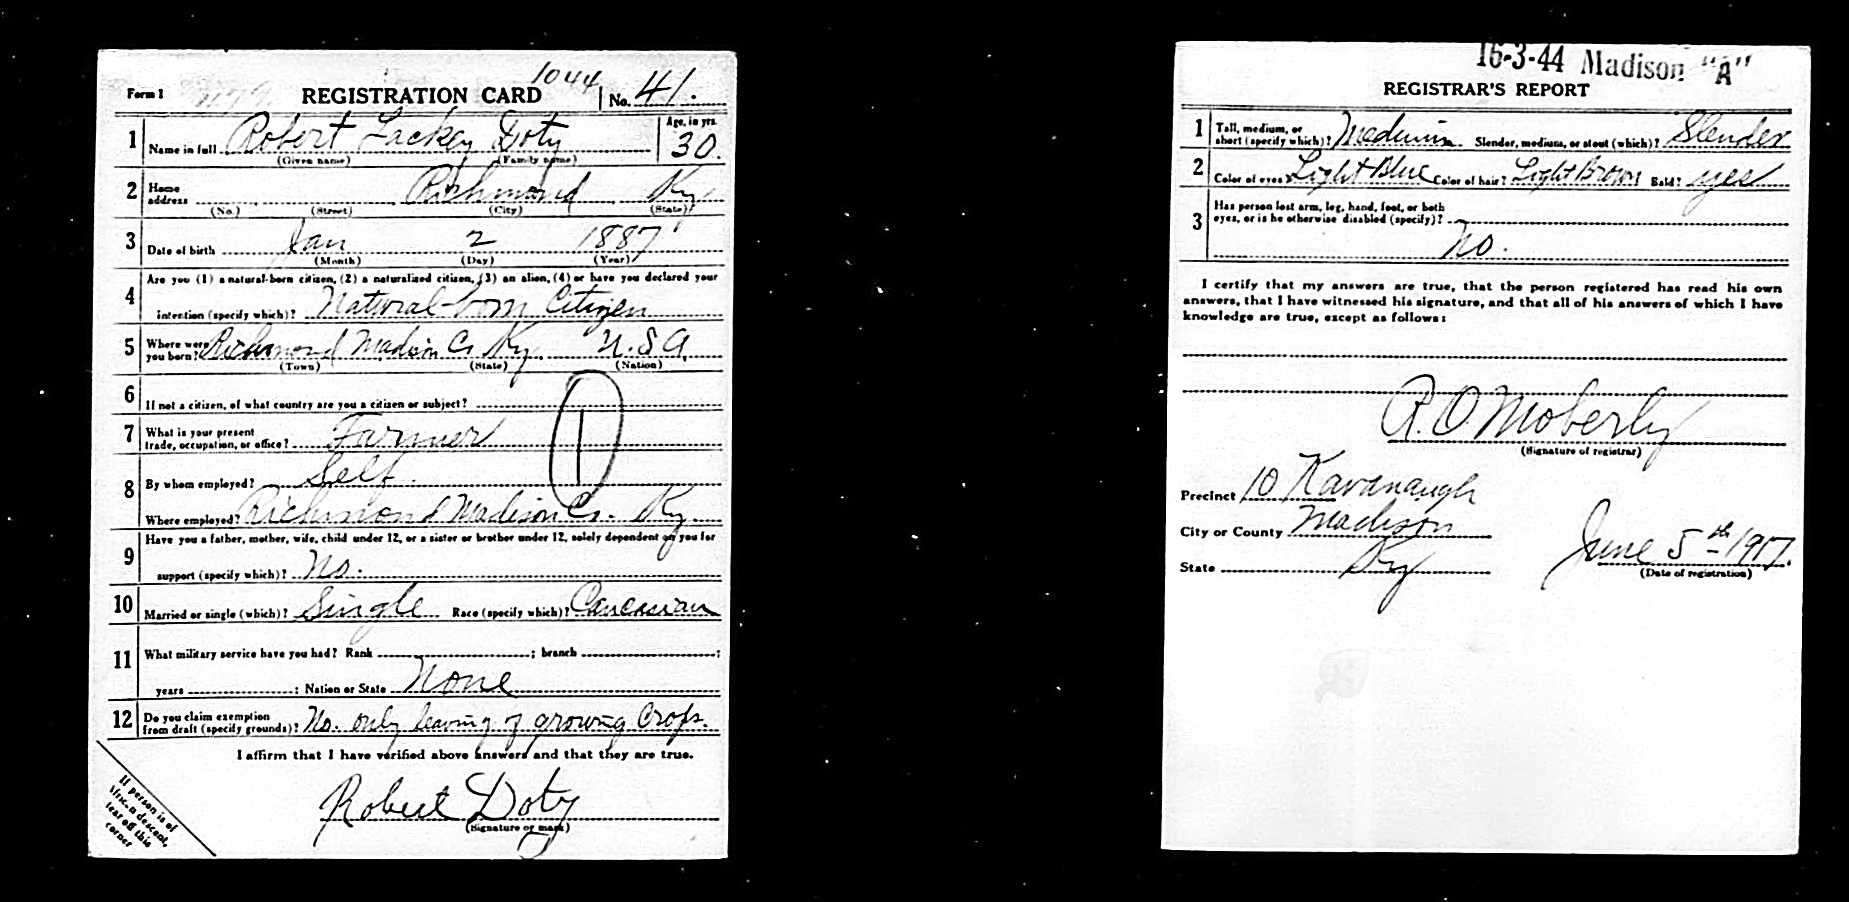 1044
Form 1 REGISTRATION CARD No. 41.
1 Name in full Robert Lackey Doty Age, in yrs. 30
(Given name) (Family name)
2 Home address Richmond Ky.
(No.) (Street) (City) (State)
3 Date of birth Jan 2 1887
(Month) (Day) (Year)
Are you (1) a natural-born citizen, (2) a naturalized citizen, (3) an alien, (4) or have you declared your
4 intention (specify which)? Natural-born Citizen
5 Where were you born? Richmond Madison Co. Ky. U.S.A.
(Town) (State) (Nation)
6 If not a citizen, of what country are you a citizen or subject?
7 What is your present trade, occupation, or office? Farmer
8 By whom employed? Self.
Where employed? Richmond Madison Co. Ky.
Have you a father, mother, wife, child under 12, or a sister or brother under 12, solely dependent on you for
9 support (specify which)? No.
10 Married or single (which)? Single Race (specify which)? Caucasian
11 What military service have you had? Rank ; branch ;
years ; Nation or State None
12 Do you claim exemption from draft (specify grounds)? No. only leaving of growing Crops.
I affirm that I have verified above answers and that they are true.
Robert Doty
(Signature or mark)
If person is of
African descent,
tear off this
corner
16-3-44 Madison "A"
REGISTRAR'S REPORT
1 Tall, medium, or short (specify which)? Medium Slender, medium, or stout (which)? Slender
2 Color of eyes? Light Blue Color of hair? Light Brown Bald? yes
3 Has person lost arm, leg, hand, foot, or both
eyes, or is he otherwise disabled (specify)?
No.
I certify that my answers are true, that the person registered has read his own
answers, that I have witnessed his signature, and that all of his answers of which I have
knowledge are true, except as follows:
R. O Moberly
(Signature of registrar)
Precinct 10 Kavanaugh
City or County Madison
State Ky
June 5th 1917.
(Date of registration)